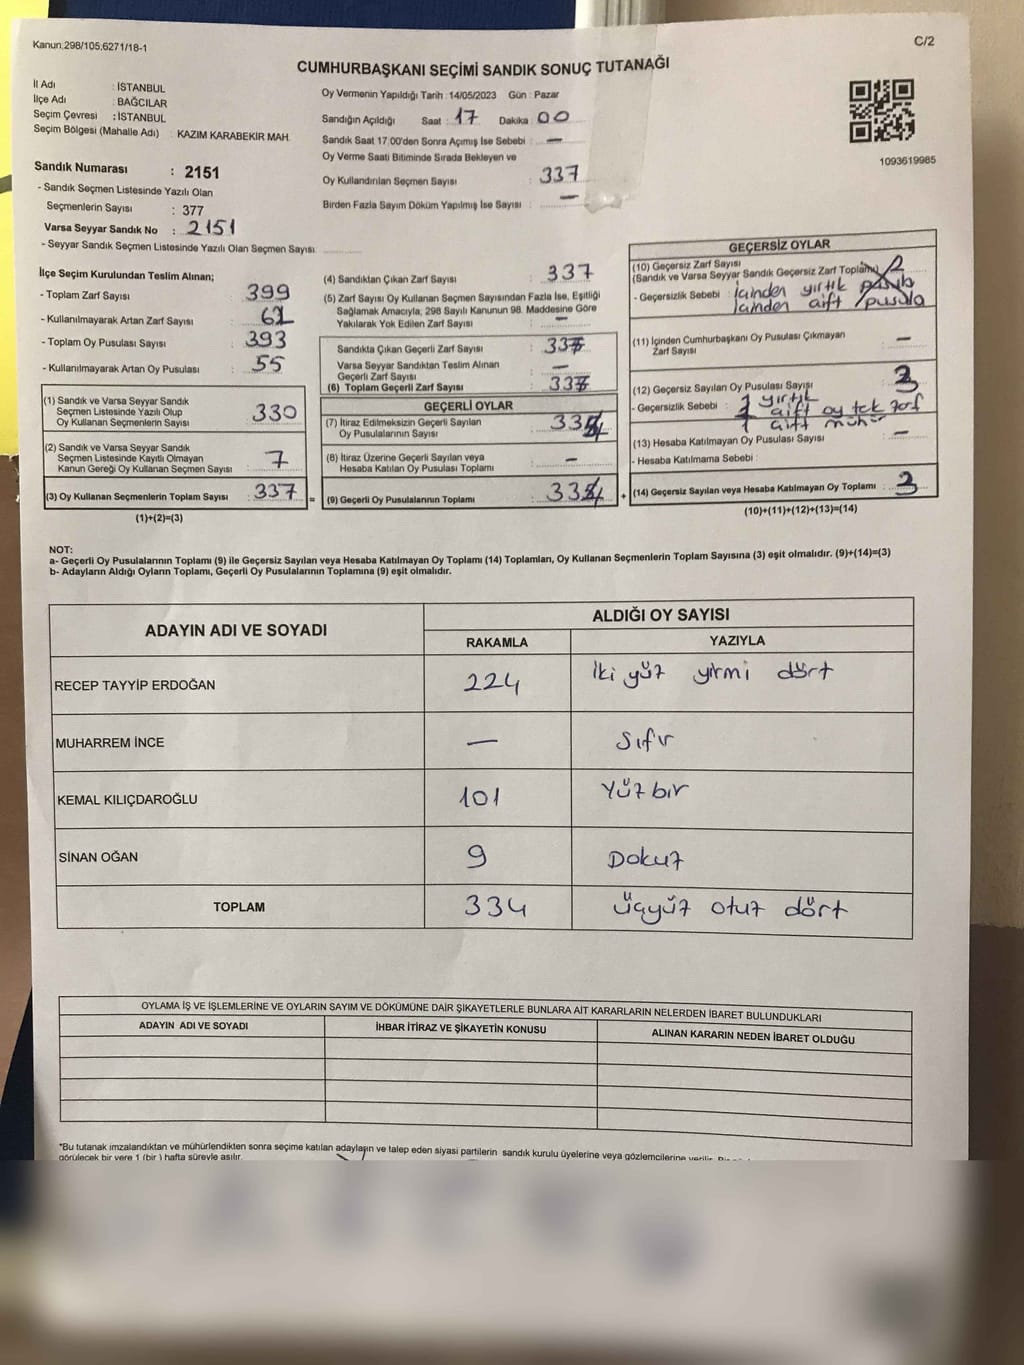 Kanun;298/105,6271/18-1
C/2
CUMHURBAŞKANI SEÇİMİ SANDIK SONUÇ TUTANAĞI
İl Adı : İSTANBUL
İlçe Adı : BAĞCILAR
Seçim Çevresi : İSTANBUL
Seçim Bölgesi (Mahalle Adı) : KAZIM KARABEKİR MAH.
Oy Vermenin Yapıldığı Tarih : 14/05/2023 Gün : Pazar
Sandığın Açıldığı Saat : 17 Dakika : 00
Sandık Saat 17:00'den Sonra Açımış İse Sebebi : —
Oy Verme Saati Bitiminde Sırada Bekleyen ve
Oy Kullandırılan Seçmen Sayısı : 337
Birden Fazla Sayım Döküm Yapılmış İse Sayısı : —
1093619985
Sandık Numarası : 2151
- Sandık Seçmen Listesinde Yazılı Olan
Seçmenlerin Sayısı : 377
Varsa Seyyar Sandık No : 2151
- Seyyar Sandık Seçmen Listesinde Yazılı Olan Seçmen Sayısı:
İlçe Seçim Kurulundan Teslim Alınan;
- Toplam Zarf Sayısı : 399
- Kullanılmayarak Artan Zarf Sayısı :
- Toplam Oy Pusulası Sayısı : 393
- Kullanılmayarak Artan Oy Pusulası : 55
(1) Sandık ve Varsa Seyyar Sandık
Seçmen Listesinde Yazılı Olup
Oy Kullanan Seçmenlerin Sayısı : 330
(2) Sandık ve Varsa Seyyar Sandık
Seçmen Listesinde Kayıtlı Olmayan
Kanun Gereği Oy Kullanan Seçmen Sayısı : 7
(3) Oy Kullanan Seçmenlerin Toplam Sayısı : 337
(1)+(2)=(3)
(4) Sandıktan Çıkan Zarf Sayısı : 337
(5) Zarf Sayısı Oy Kullanan Seçmen Sayısından Fazla İse, Eşitliği
Sağlamak Amacıyla, 298 Sayılı Kanunun 98. Maddesine Göre
Yakılarak Yok Edilen Zarf Sayısı : —
Sandıkta Çıkan Geçerli Zarf Sayısı :
Varsa Seyyar Sandıktan Teslim Alınan
Geçerli Zarf Sayısı : —
(6) Toplam Geçerli Zarf Sayısı :
GEÇERLİ OYLAR
(7) İtiraz Edilmeksizin Geçerli Sayılan
Oy Pusulalarının Sayısı :
(8) İtiraz Üzerine Geçerli Sayılan veya
Hesaba Katılan Oy Pusulası Toplamı : —
= (9) Geçerli Oy Pusulalarının Toplamı :
GEÇERSİZ OYLAR
(10) Geçersiz Zarf Sayısı
(Sandık ve Varsa Seyyar Sandık Geçersiz Zarf Toplamı)
- Geçersizlik Sebebi : içinden yırtık pusula
içinden çift pusula
(11) İçinden Cumhurbaşkanı Oy Pusulası Çıkmayan
Zarf Sayısı : —
(12) Geçersiz Sayılan Oy Pusulası Sayısı : 3
- Geçersizlik Sebebi : 1 yırtık
1 çift oy tek zarf
1 çift mühür
(13) Hesaba Katılmayan Oy Pusulası Sayısı : —
- Hesaba Katılmama Sebebi :
+ (14) Geçersiz Sayılan veya Hesaba Katılmayan Oy Toplamı : 3
(10)+(11)+(12)+(13)=(14)
NOT:
a- Geçerli Oy Pusulalarının Toplamı (9) ile Geçersiz Sayılan veya Hesaba Katılmayan Oy Toplamı (14) Toplamları, Oy Kullanan Seçmenlerin Toplam Sayısına (3) eşit olmalıdır. (9)+(14)=(3)
b- Adayların Aldığı Oyların Toplamı, Geçerli Oy Pusulalarının Toplamına (9) eşit olmalıdır.
ADAYIN ADI VE SOYADI
ALDIĞI OY SAYISI
RAKAMLA YAZIYLA
RECEP TAYYİP ERDOĞAN 224 İki yüz yirmi dört
MUHARREM İNCE — Sıfır
KEMAL KILIÇDAROĞLU 101 Yüz bir
SİNAN OĞAN 9 Dokuz
TOPLAM 334 üçyüz otuz dört
OYLAMA İŞ VE İŞLEMLERİNE VE OYLARIN SAYIM VE DÖKÜMÜNE DAİR ŞİKAYETLERLE BUNLARA AİT KARARLARIN NELERDEN İBARET BULUNDUKLARI
ADAYIN ADI VE SOYADI İHBAR İTİRAZ VE ŞİKAYETİN KONUSU ALINAN KARARIN NEDEN İBARET OLDUĞU
*Bu tutanak imzalandıktan ve mühürlendikten sonra seçime katılan adayların ve talep eden siyasi partilerin sandık kurulu üyelerine veya gözlemcilerine verilir.
görülecek bir yere 1 (bir) hafta süreyle asılır.